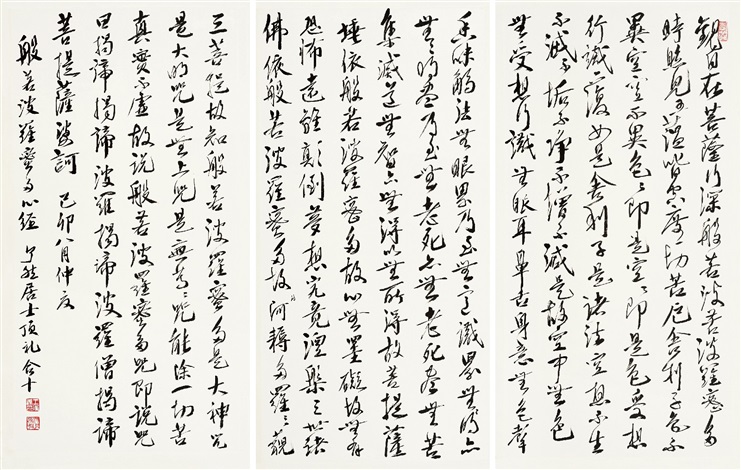 觀自在菩薩行深般若波若波羅蜜多
時照見五蘊皆空度一切苦厄舍利子色不
異空空不異色〻即是空〻即是色受想
行識亦復如是舍利子是諸法空想不生
不滅不垢不淨不增不減是故空中無色
無受想行識無眼耳鼻舌身意無色聲
香味觸法無眼界乃至無意識界無明亦
無〻明盡乃至無老死亦無老死盡無苦
集滅道無智亦無得以無所得故菩提薩
埵依般若波羅蜜多故心無罣礙故無有
恐怖遠離顛倒夢想究竟涅槃三世諸
佛依般若波羅蜜多故阿耨多羅三藐
三菩提故知般若波羅蜜多是大神咒
是大明咒是無上咒是無等〻咒能除一切苦
真實不虛故說般若波羅蜜多咒即說咒
曰揭諦揭諦波羅揭諦波羅僧揭諦
菩提薩婆訶 己卯八月仲夜
般若波羅蜜多心經 了然居士頂禮合十